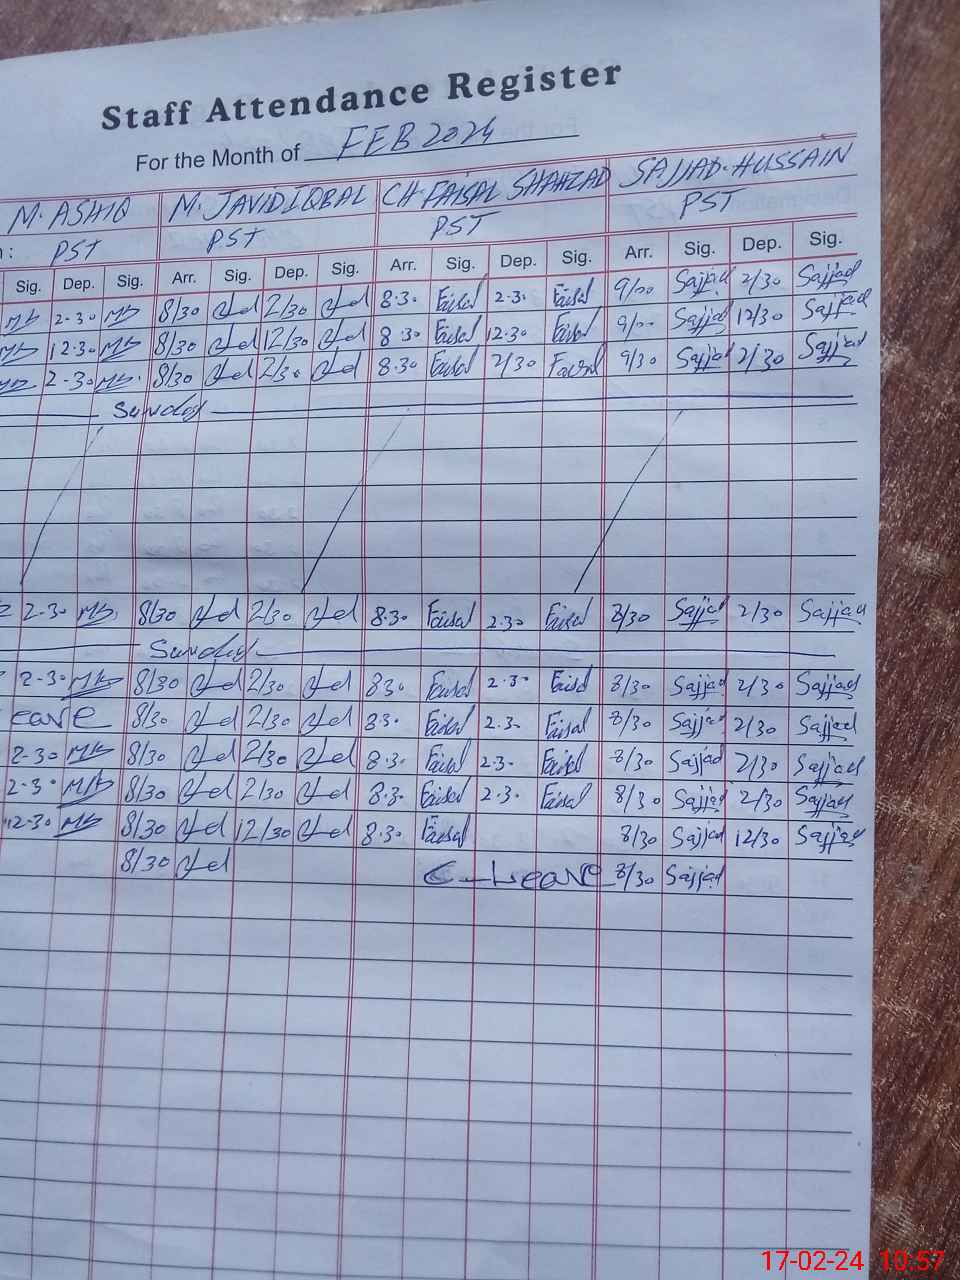 Staff Attendance Register
For the Month of FEB 2024
M. ASHIQ M. JAVIDIQBAL CH. FAISAL SHAHZAD SAJJAD. HUSSAIN
PST PST PST PST
Sig. Dep. Sig. Arr. Sig. Dep. Sig. Arr. Sig. Dep. Sig. Arr. Sig. Dep. Sig.
2-30 8/30 2/30 8.30 Faisal 2.30 Faisal 9/00 Sajjad 2/30 Sajjad
12.30 8/30 12/30 8.30 Faisal 12.30 Faisal 9/00 Sajjad 12/30 Sajjad
2-30 8/30 2/30 8.30 Faisal 2/30 Faisal 9/30 Sajjad 2/30 Sajjad
Sunday
2-30 8/30 2/30 8.30 Faisal 2.30 Faisal 8/30 Sajjad 2/30 Sajjad
Sunday
2-30 8/30 2/30 830 Faisal 2.30 Faisal 8/30 Sajjad 2/30 Sajjad
eave 8/30 2/30 8.30 Faisal 2.30 Faisal 8/30 Sajjad 2/30 Sajjad
2-30 8/30 2/30 8.30 Faisal 2.30 Faisal 8/30 Sajjad 2/30 Sajjad
2-30 8/30 2/30 8.30 Faisal 2.30 Faisal 8/30 Sajjad 2/30 Sajjad
12-30 8/30 12/30 8.30 Faisal 8/30 Sajjad 12/30 Sajjad
8/30 C-Leave 8/30 Sajjad
17-02-24 10:57